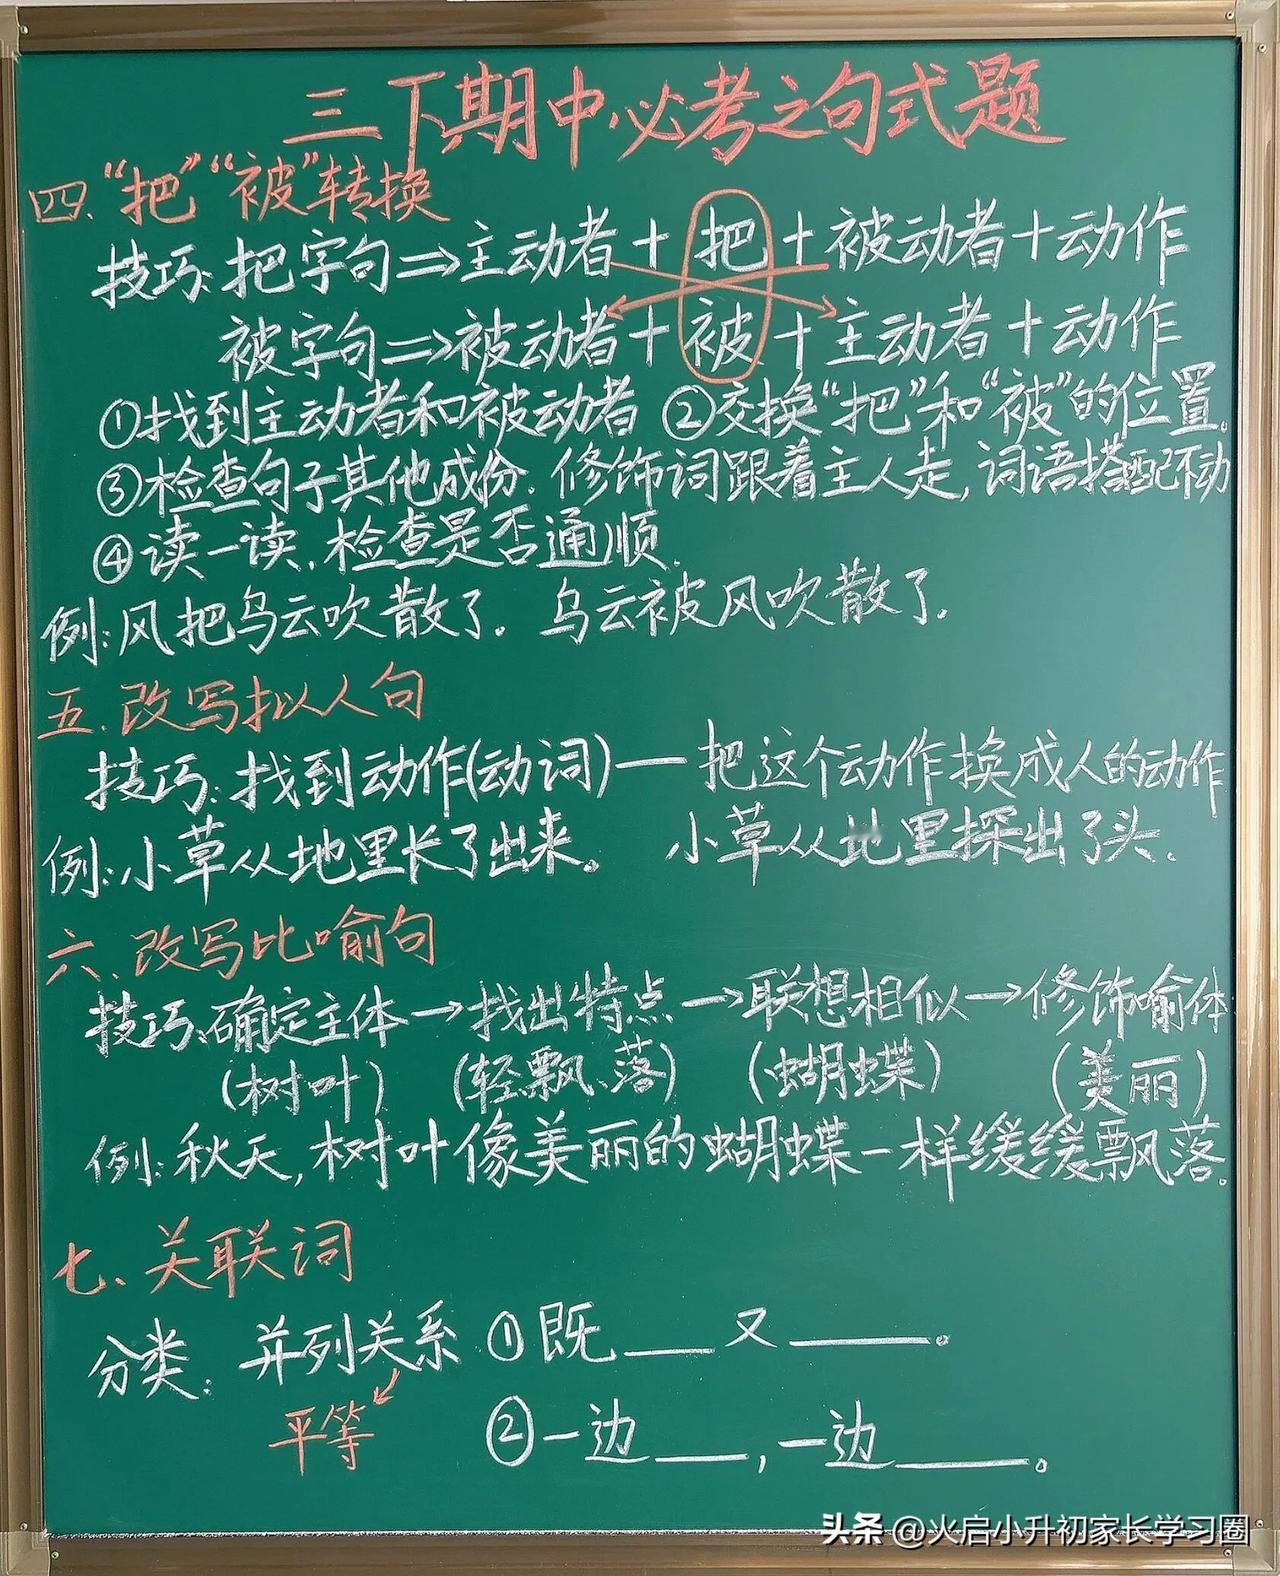 三下期中必考之句式题
四.“把”“被”转换
技巧:把字句⇒主动者+把+被动者+动作
被字句⇒被动者+被+主动者+动作
①找到主动者和被动者 ②交换“把”和“被”的位置.
③检查句子其他成份.修饰词跟着主人走,词语搭配不动
④读一读,检查是否通顺.
例:风把乌云吹散了. 乌云被风吹散了.
五.改写拟人句
技巧:找到动作(动词)—把这个动作换成人的动作
例:小草从地里长了出来。 小草从地里探出了头.
六.改写比喻句
技巧:确定主体→找出特点→联想相似→修饰喻体
(树叶) (轻飘、落) (蝴蝶) (美丽)
例:秋天,树叶像美丽的蝴蝶一样缓缓飘落.
七、关联词
分类:并列关系 ①既___又____。
平等 ②一边___,一边____。
头条 @火启小升初家长学习圈